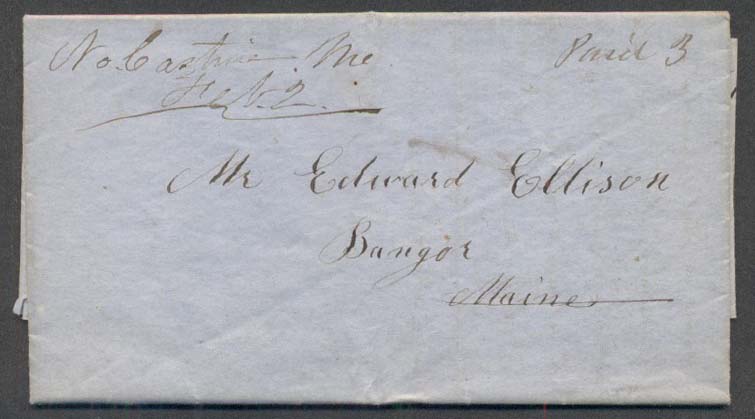 No. Castine Me
Paid 3
Feb. 2.
Mr Edward Ellison
Bangor
Maine